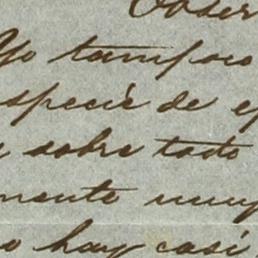 Obser
Yo tampoco
especie de e
sobre todo
mente muy
o hay casi